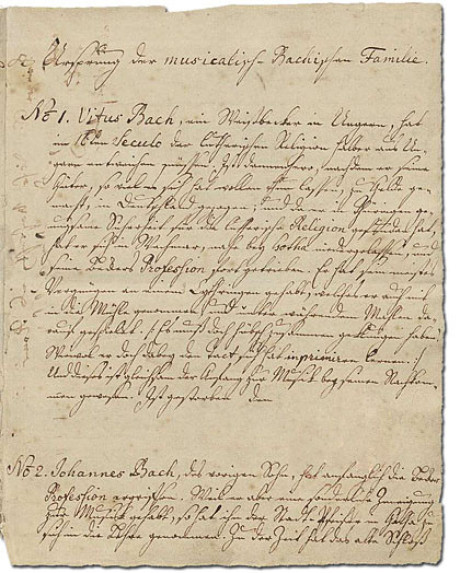 Ursprung der musicalisch-Bachischen Familie.
No 1. Vitus Bach, ein Weißbecker in Ungern, hat
im 16ten Seculo der lutherischen Religion halber aus Un-
garn entweichen müßen. Ist dannenhero, nachdem er seine
Güter, so viel es sich hat wollen thun laßen, zu Gelde ge-
macht, in Teutschland gezogen; und da er in Thüringen ge-
nugsame Sicherheit für die lutherische Religion gefunden hat,
hat er sich in Wechmar, nahe bey Gotha niedergelaßen, und
seine Beckers Profession fortgetrieben. Er hat sein meistes
Vergnügen an einem Cythringen gehabt, welches er auch mit
in die Mühle genommen, und unter währendem Mahlen dar-
auf gespielet. (Es muß doch hübsch zusammen geklungen haben!
Wiewol er doch dabey den Tact sich hat imprimiren lernen.)
Und dieses ist gleichsam der Anfang zur Musik bey seinen Nachkom-
men gewesen. Ist gestorben den
No 2. Johannes Bach, des vorigen Sohn, hat anfänglich die Becker
Profession ergriffen. Weil er aber eine sonderliche Zuneigung
zur Musik gehabt, so hat ihn der Stadt Pfeiffer in Gotha zu
sich in die Lehre genommen. Zu der Zeit hat das alte Schloß